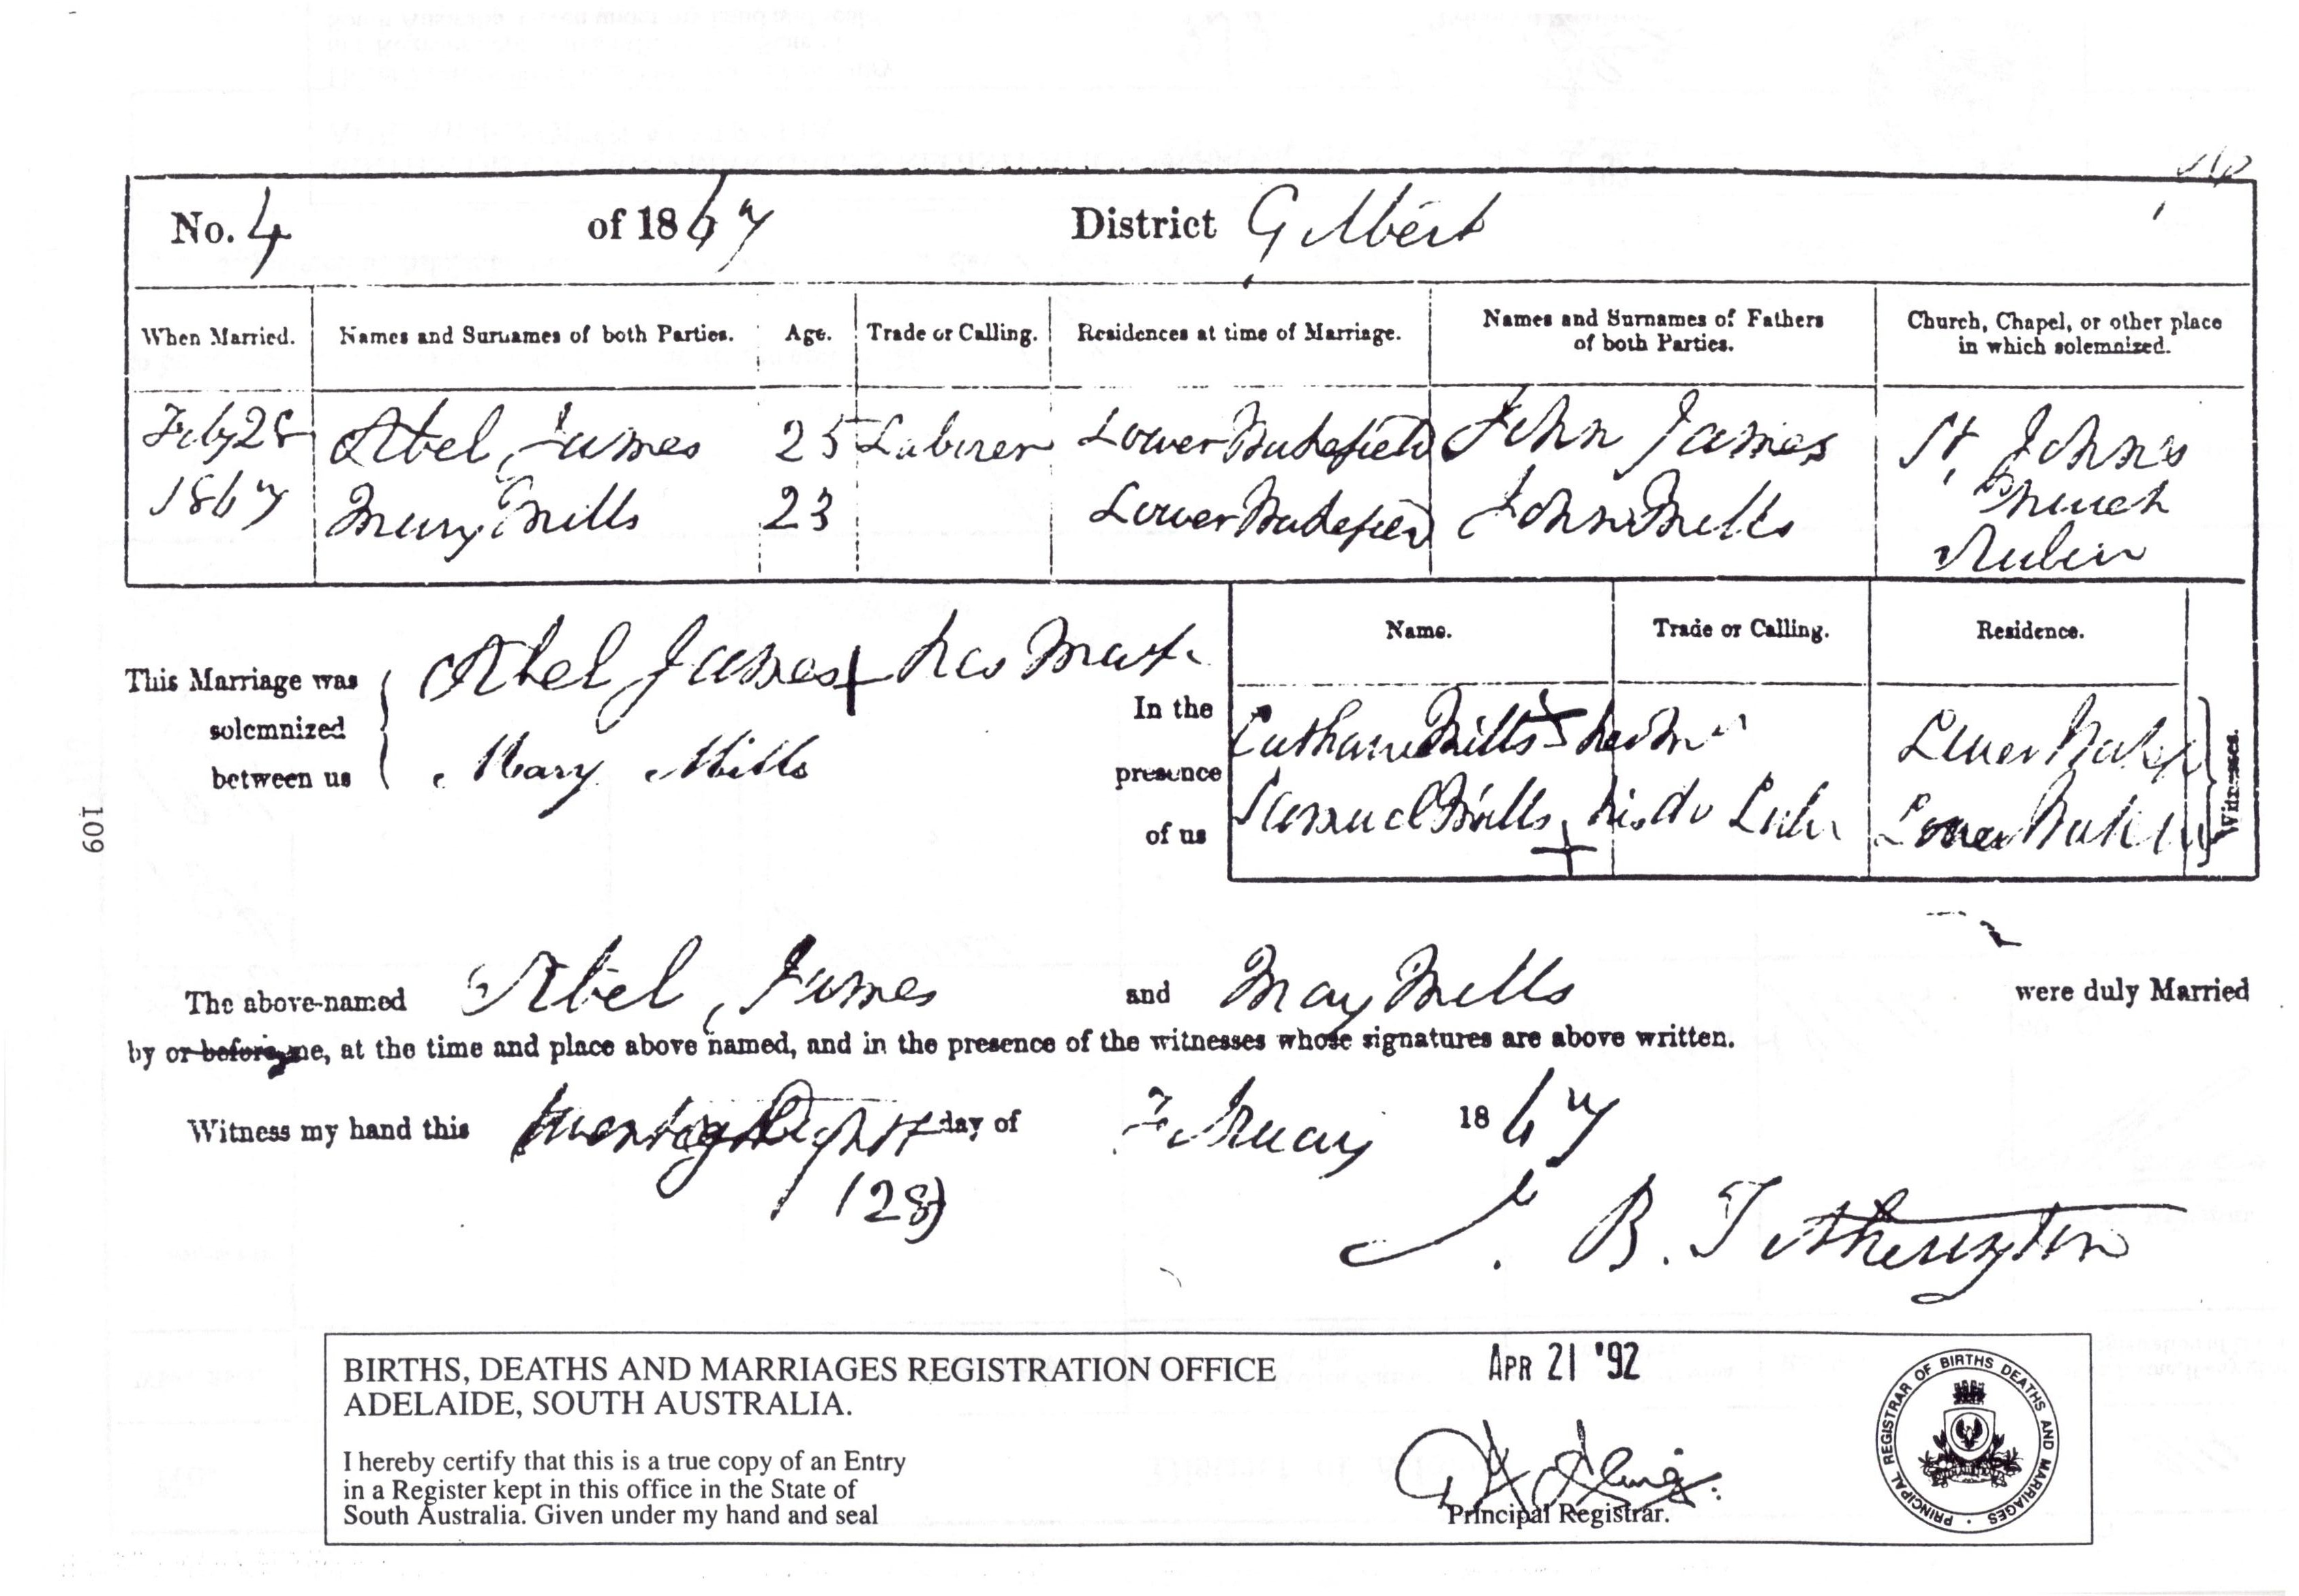 No. 4 of 1867 District Gilbert
When Married. Names and Surnames of both Parties. Age. Trade or Calling. Residences at time of Marriage. Names and Surnames of Fathers of both Parties. Church, Chapel, or other place in which solemnized.
Feby 28 Abel James 25 Laborer Lower Wakefield John James St. John's
1867 Mary Mills 23 Lower Wakefield John Mills Church
Name. Trade or Calling. Residence.
This Marriage was solemnized between us
Abel James + his Mark
Mary Mills
In the presence of us
Mills + her
Samuel Mills + his do Lower
Witnesses.
109
The above-named Abel James and May Mills were duly Married
by or before me, at the time and place above named, and in the presence of the witnesses whose signatures are above written.
Witness my hand this twenty Eighth day of February 1867
(28)
B. Titherington
BIRTHS, DEATHS AND MARRIAGES REGISTRATION OFFICE
ADELAIDE, SOUTH AUSTRALIA.
APR 21 '92
I hereby certify that this is a true copy of an Entry
in a Register kept in this office in the State of
South Australia. Given under my hand and seal
Principal Registrar.
PRINCIPAL REGISTRAR OF BIRTHS DEATHS AND MARRIAGES